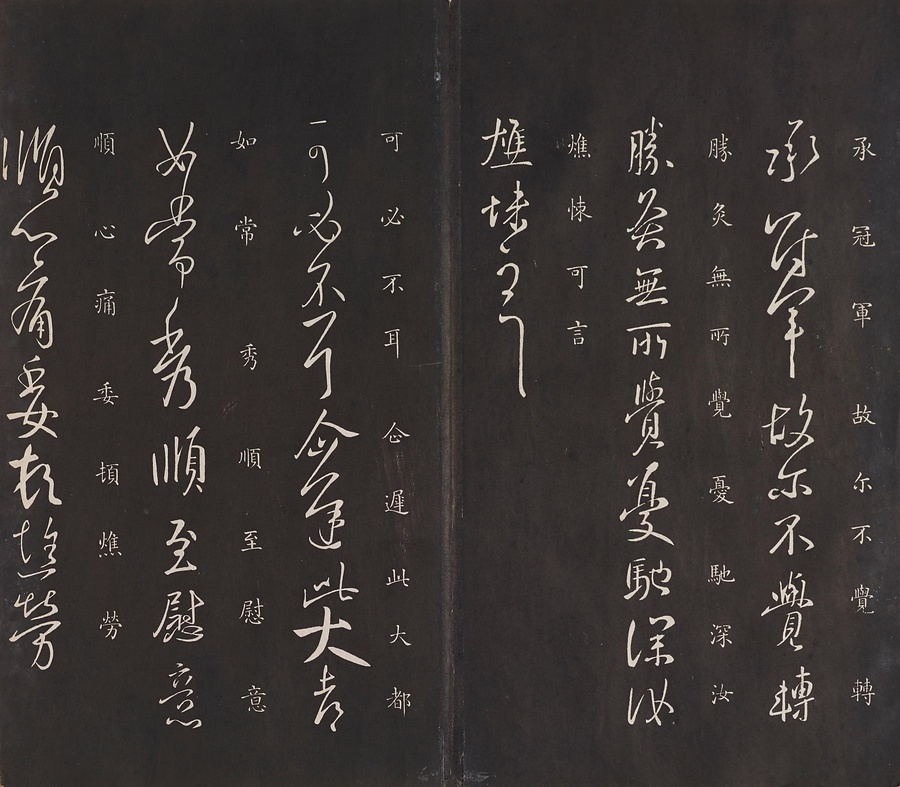 承冠軍故尔不覺轉
承冠軍故尔不覺轉
勝灸無所覺憂馳深汝
勝灸無所覺憂馳深汝
燋悚可言
燋悚可言
可必不耳仚遲此大都
可必不耳仚遲此大都
如常秀順至慰意
如常秀順至慰意
順心痛委頓燋勞
順心痛委頓燋勞